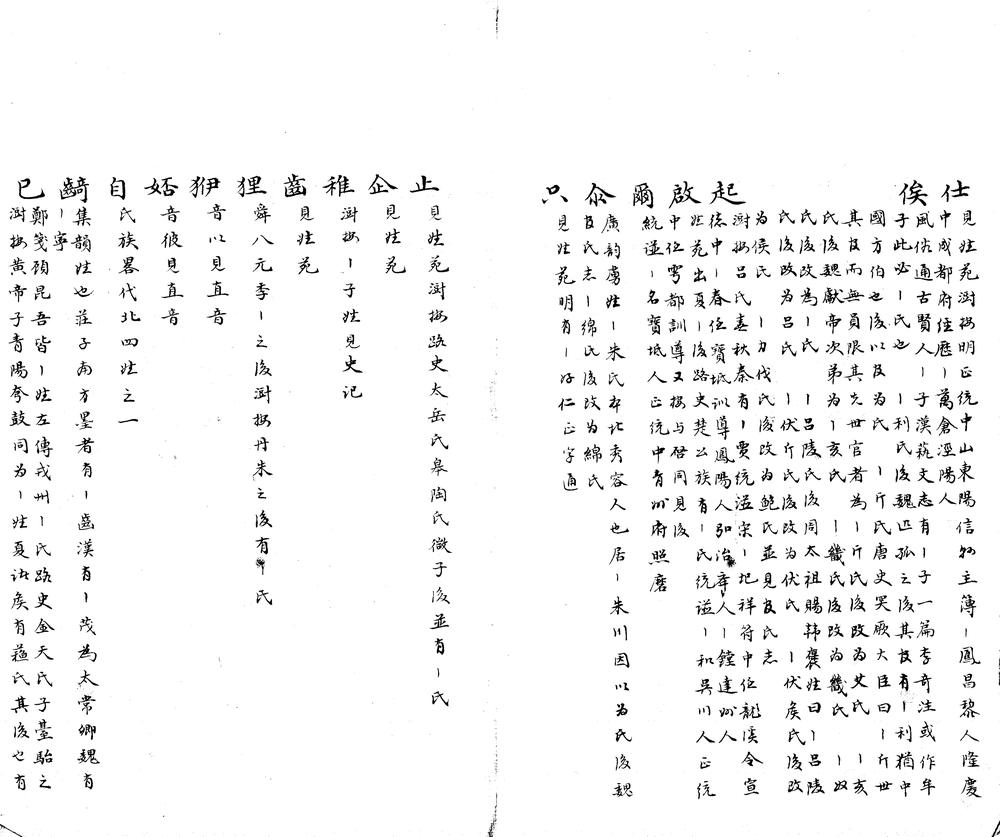 仕 見姓苑澍按明正統中山東陽信知主薄丨鳳昌黎人隆慶
中成都府經歷丨萬倉涇陽人
俟 風俗通古賢人丨子漢藝文志有丨子一篇李奇注或作牟
子此必丨氏也 丨利氏後魏匹孤之後其有丨利猶中
國方伯也後以為氏 丨斤氏唐史突厥大臣曰丨斤世
其而無員限其先世官者為丨斤氏後改為艾氏 丨亥
氏後魏獻帝次弟為丨亥氏 丨幾氏後改為幾氏 丨奴
氏後改為丨氏 丨呂陵氏後周太祖賜韓褒姓曰丨呂陵
氏後改为呂氏 丨伏斤氏後改为伏氏 丨伏矦氏後改
为侯氏 丨力伐氏後改为鮑氏並見氏志
起 澍按呂氏春秋秦有丨賈統溢宋丨圯祥符中任龍溪令宣
德中丨春任寶坻訓導鳳陽人弘治辛人丨鏜達州人
啟 姓苑出夏丨後路史楚公族有丨氏統溢丨和吳川人正統
中任雩都訓導又按与啓同見後
爾 統溢丨名寶坻人正統中青州府照磨
尒 廣韵虜姓丨朱氏本北秀容人也居丨朱川因以为氏後魏
氏志丨綿氏後改为綿氏
只 見姓苑明有丨好仁正字通
止 見姓苑澍按路史太岳氏皋陶氏微子後並有丨氏
企 見姓苑
稚 澍按丨子姓見史记
齒 見姓苑
狸 舜八元季丨之後澍按丹朱之後有丨氏
狔 音以見直音
㛃 音彼見直音
自 氏族畧代北四姓之一
齮 集韻姓也莊子南方墨者有丨齒漢有丨茂為太常卿魏有
丨寧
巳 鄭箋顾昆吾皆丨姓左傳戎州丨氏路史金天氏子臺駘之
澍按黄帝子青陽夸鼓同为丨姓夏諸矦有蘓氏其後也有